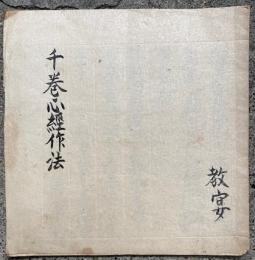 千巻心經作法
教宴